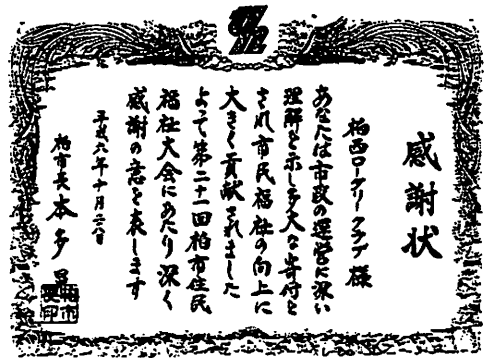 感謝状
柏西ロータリークラブ様
あなたは市政の運営に深い
理解を示し多大な寄付を
され市民福祉の向上に
大きく貢献されました
よって第二十一回柏市住民
福祉大会にあたり深く
感謝の意を表します
平成六年十月二八日
柏市長 本多晃